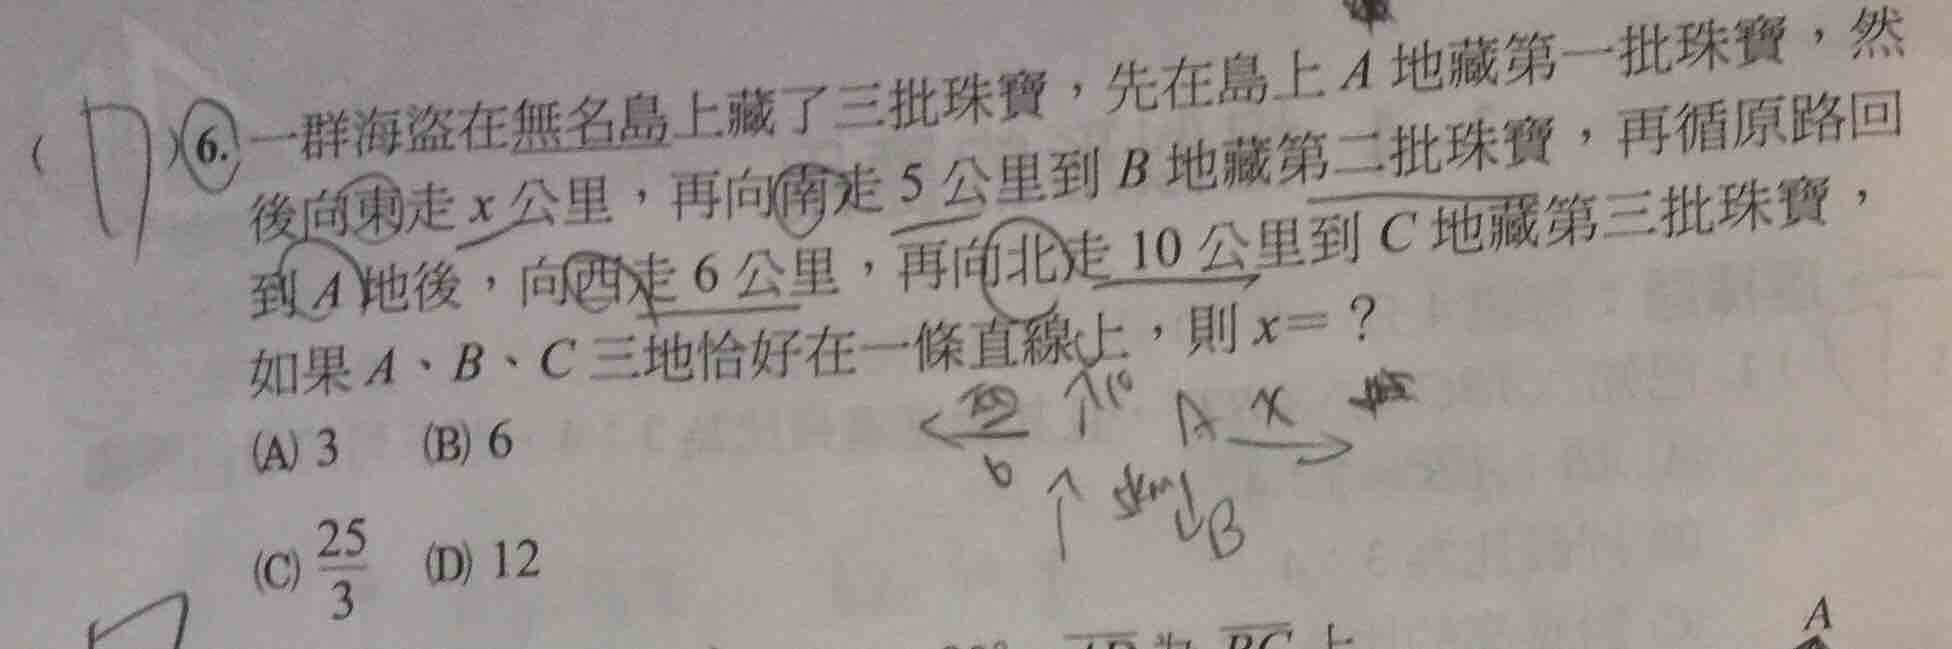 ( D )6. 一群海盜在無名島上藏了三批珠寶，先在島上 A 地藏第一批珠寶，然
後向東走 x 公里，再向南走 5 公里到 B 地藏第二批珠寶，再循原路回
到 A 地後，向西走 6 公里，再向北走 10 公里到 C 地藏第三批珠寶，
如果 A、B、C 三地恰好在一條直線上，則 x＝？
西 10 A x
(A) 3 (B) 6
6 5km B
(C) 25/3 (D) 12
A